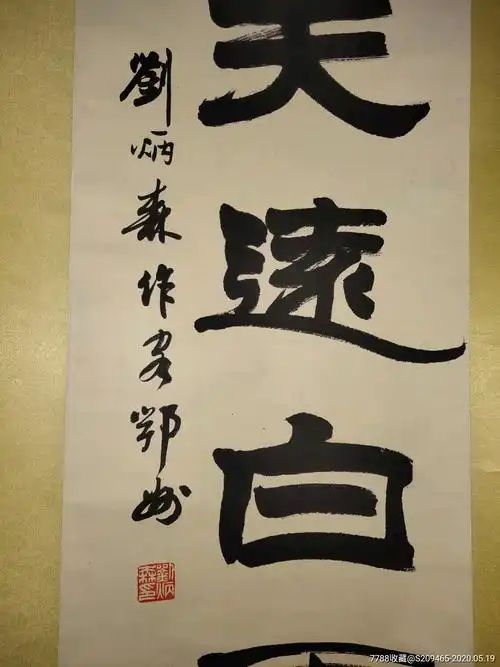 天遠白
劉炳森作客鄂州
劉炳森印
7788收藏@S209465-2020.05.19